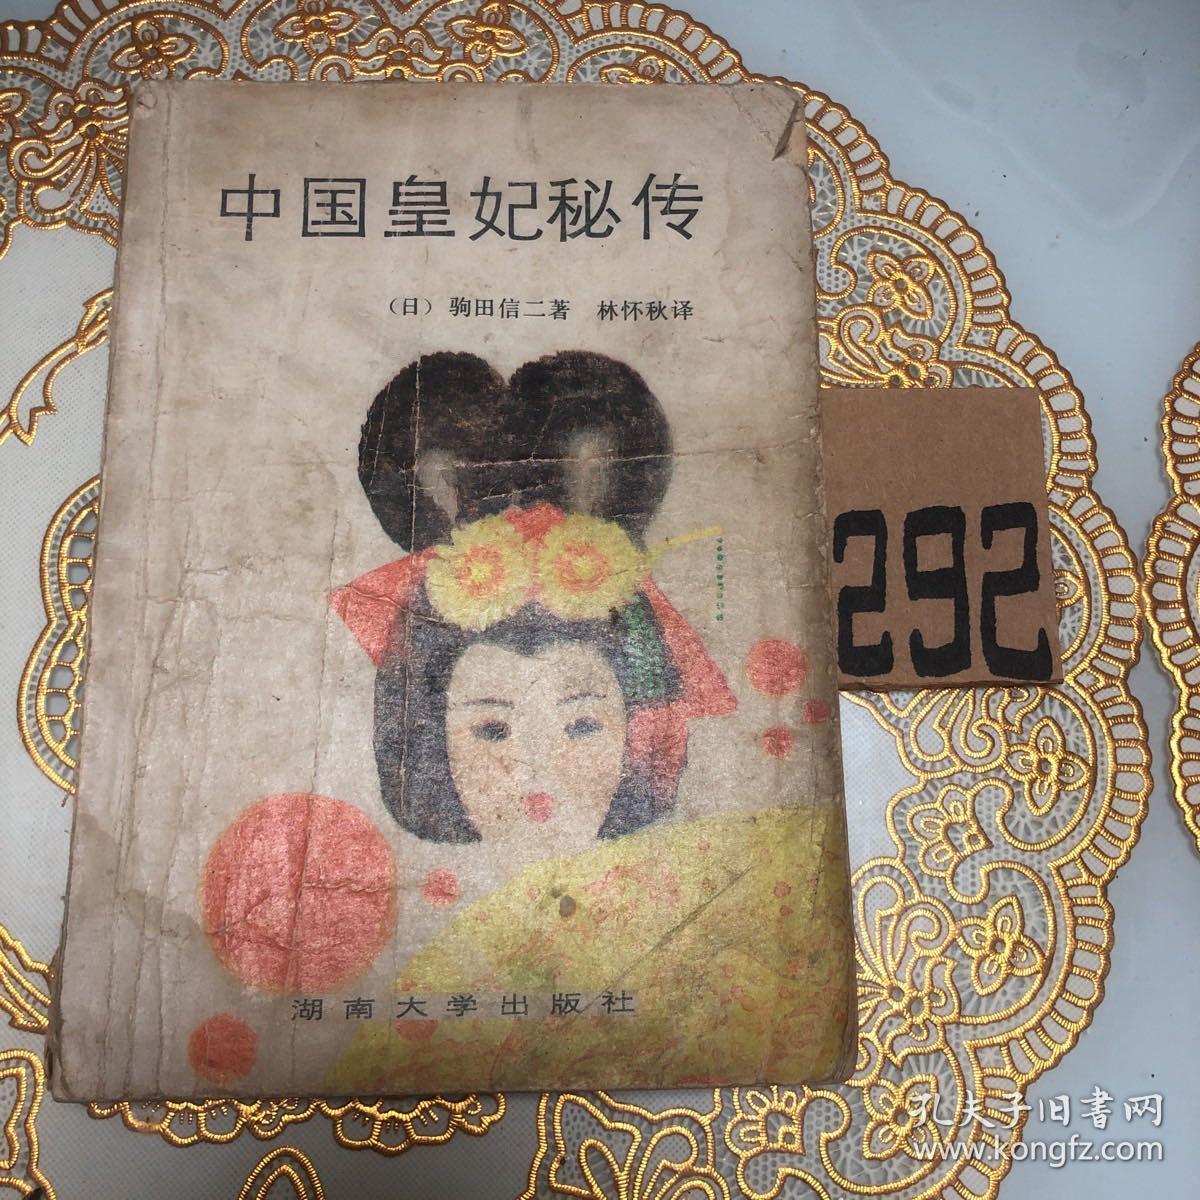 中国皇妃秘传
（日）驹田信二著 林怀秋译
292
湖南大学出版社
孔夫子旧書网
www.kongfz.com